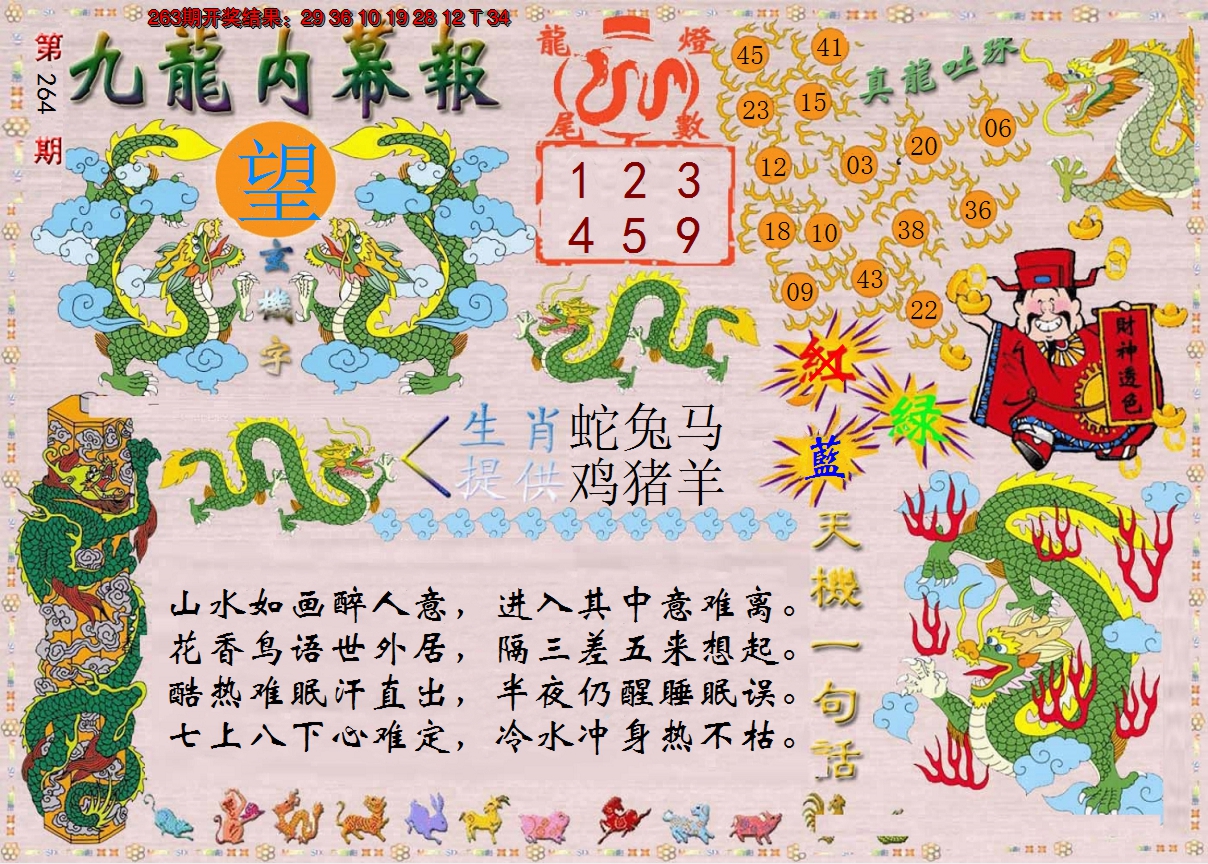 263期开奖结果：29 36 10 19 28 12 T 34
第264期
九龍内幕報
望
玄機字
龍燈尾數
1 2 3
4 5 9
真龍吐珠
45
41
23
15
06
20
12
03
36
18
10
38
43
09
22
財神透色
紅
綠
藍
生肖提供
蛇兔马
鸡猪羊
天機一句話
山水如画醉人意，进入其中意难离。
花香鸟语世外居，隔三差五来想起。
酷热难眠汗直出，半夜仍醒睡眠误。
七上八下心难定，冷水冲身热不枯。